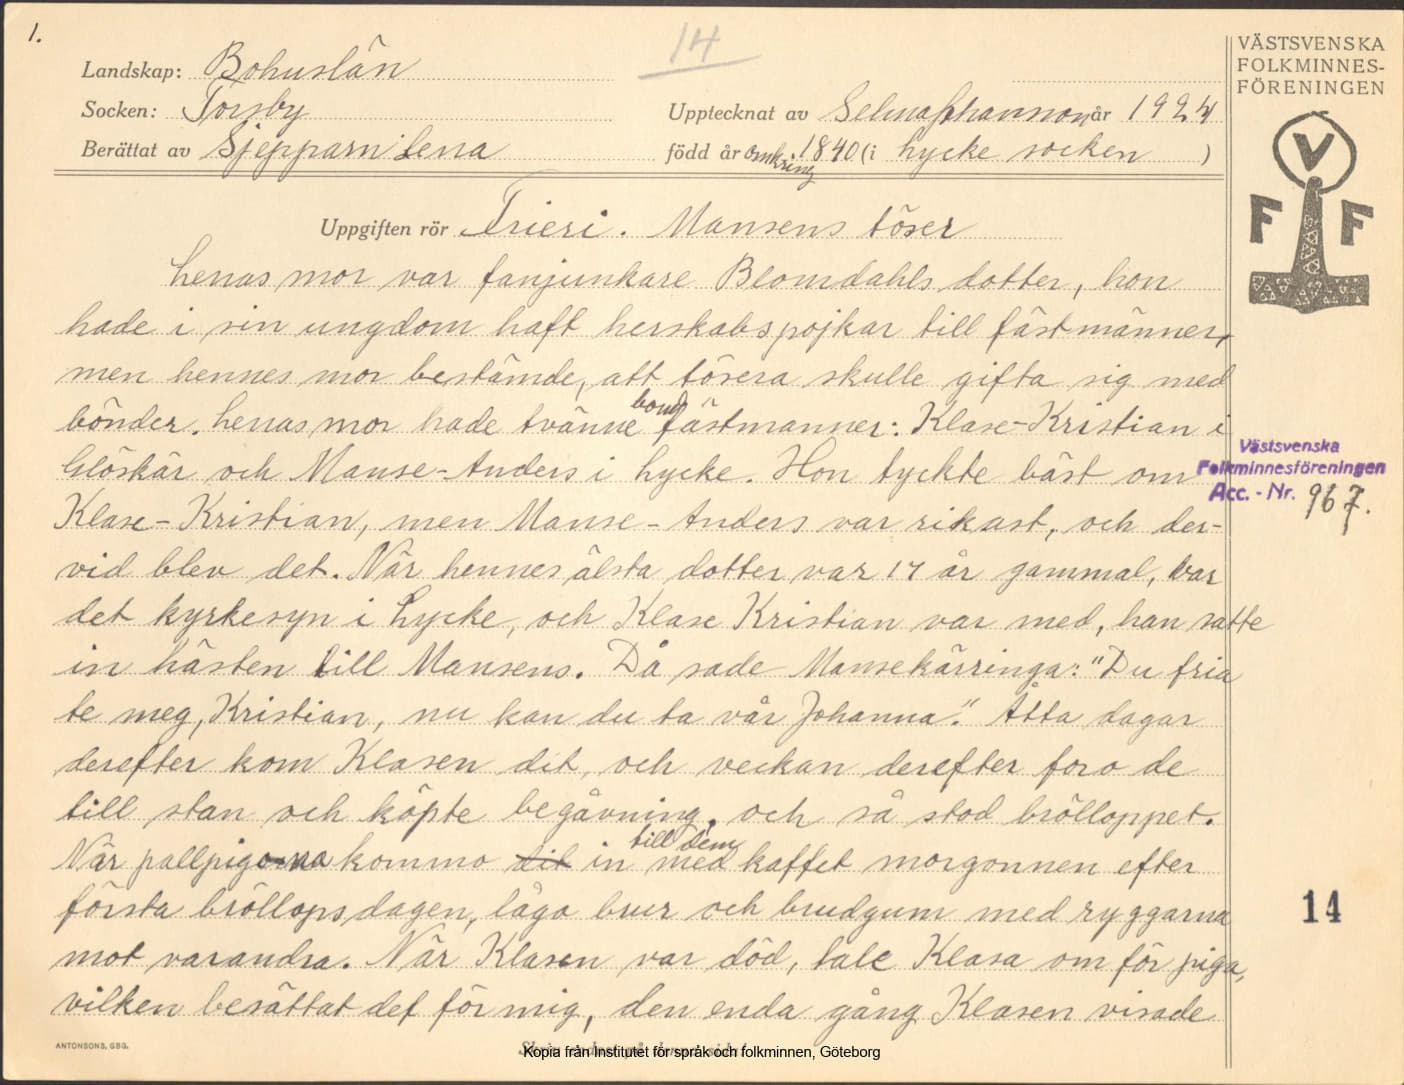 1.
14
VÄSTSVENSKA
FOLKMINNES-
FÖRENINGEN
Landskap: Bohuslän
Socken: Torsby
Upptecknat av Selma Johansson år 1924
Berättat av Sjepparn Lena
född år omkring 1840 (i Lycke socken )
V
F F
Uppgiften rör Frieri. Mansens töser
Lenas mor var fanjunkare Blomdahls dotter, hon
hade i sin ungdom haft herskabspojkar till fästmänner,
men hennes mor bestämde, att tösera skulle gifta sig med
bönder. Lenas mor hade tvänne bond fästmanner: Klase-Kristian i
Glöskär och Manse-Anders i Lycke. Hon tyckte bäst om
Klase-Kristian, men Manse-Anders var rikast, och der-
vid blev det. När hennes älsta dotter var 17 år gammal, var
det kyrkesyn i Lycke, och Klase Kristian var med, han satte
in hästen till Mansens. Då sade Mansekärringa: "Du fria
te meg, Kristian, nu kan du ta vår Johanna". Åtta dagar
derefter kom Klasen dit, och veckan derefter foro de
till stan och köpte begåvning, och så stod brölloppet.
När pallpigorna kommo dit in till dem med kaffet morgonnen efter
första bröllopsdagen, lågo brur och brudgum med ryggarna
mot varandra. När Klasen var död, tale Klasa om för piga,
vilken berättat det för mig, den enda gång Klasen visade
Västsvenska
Folkminnesföreningen
Acc. - Nr. 967.
14
ANTONSONS, GBG.
Kopia från Institutet för språk och folkminnen, Göteborg